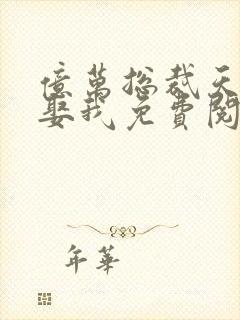 億萬總裁天
娶我免費閱
年華